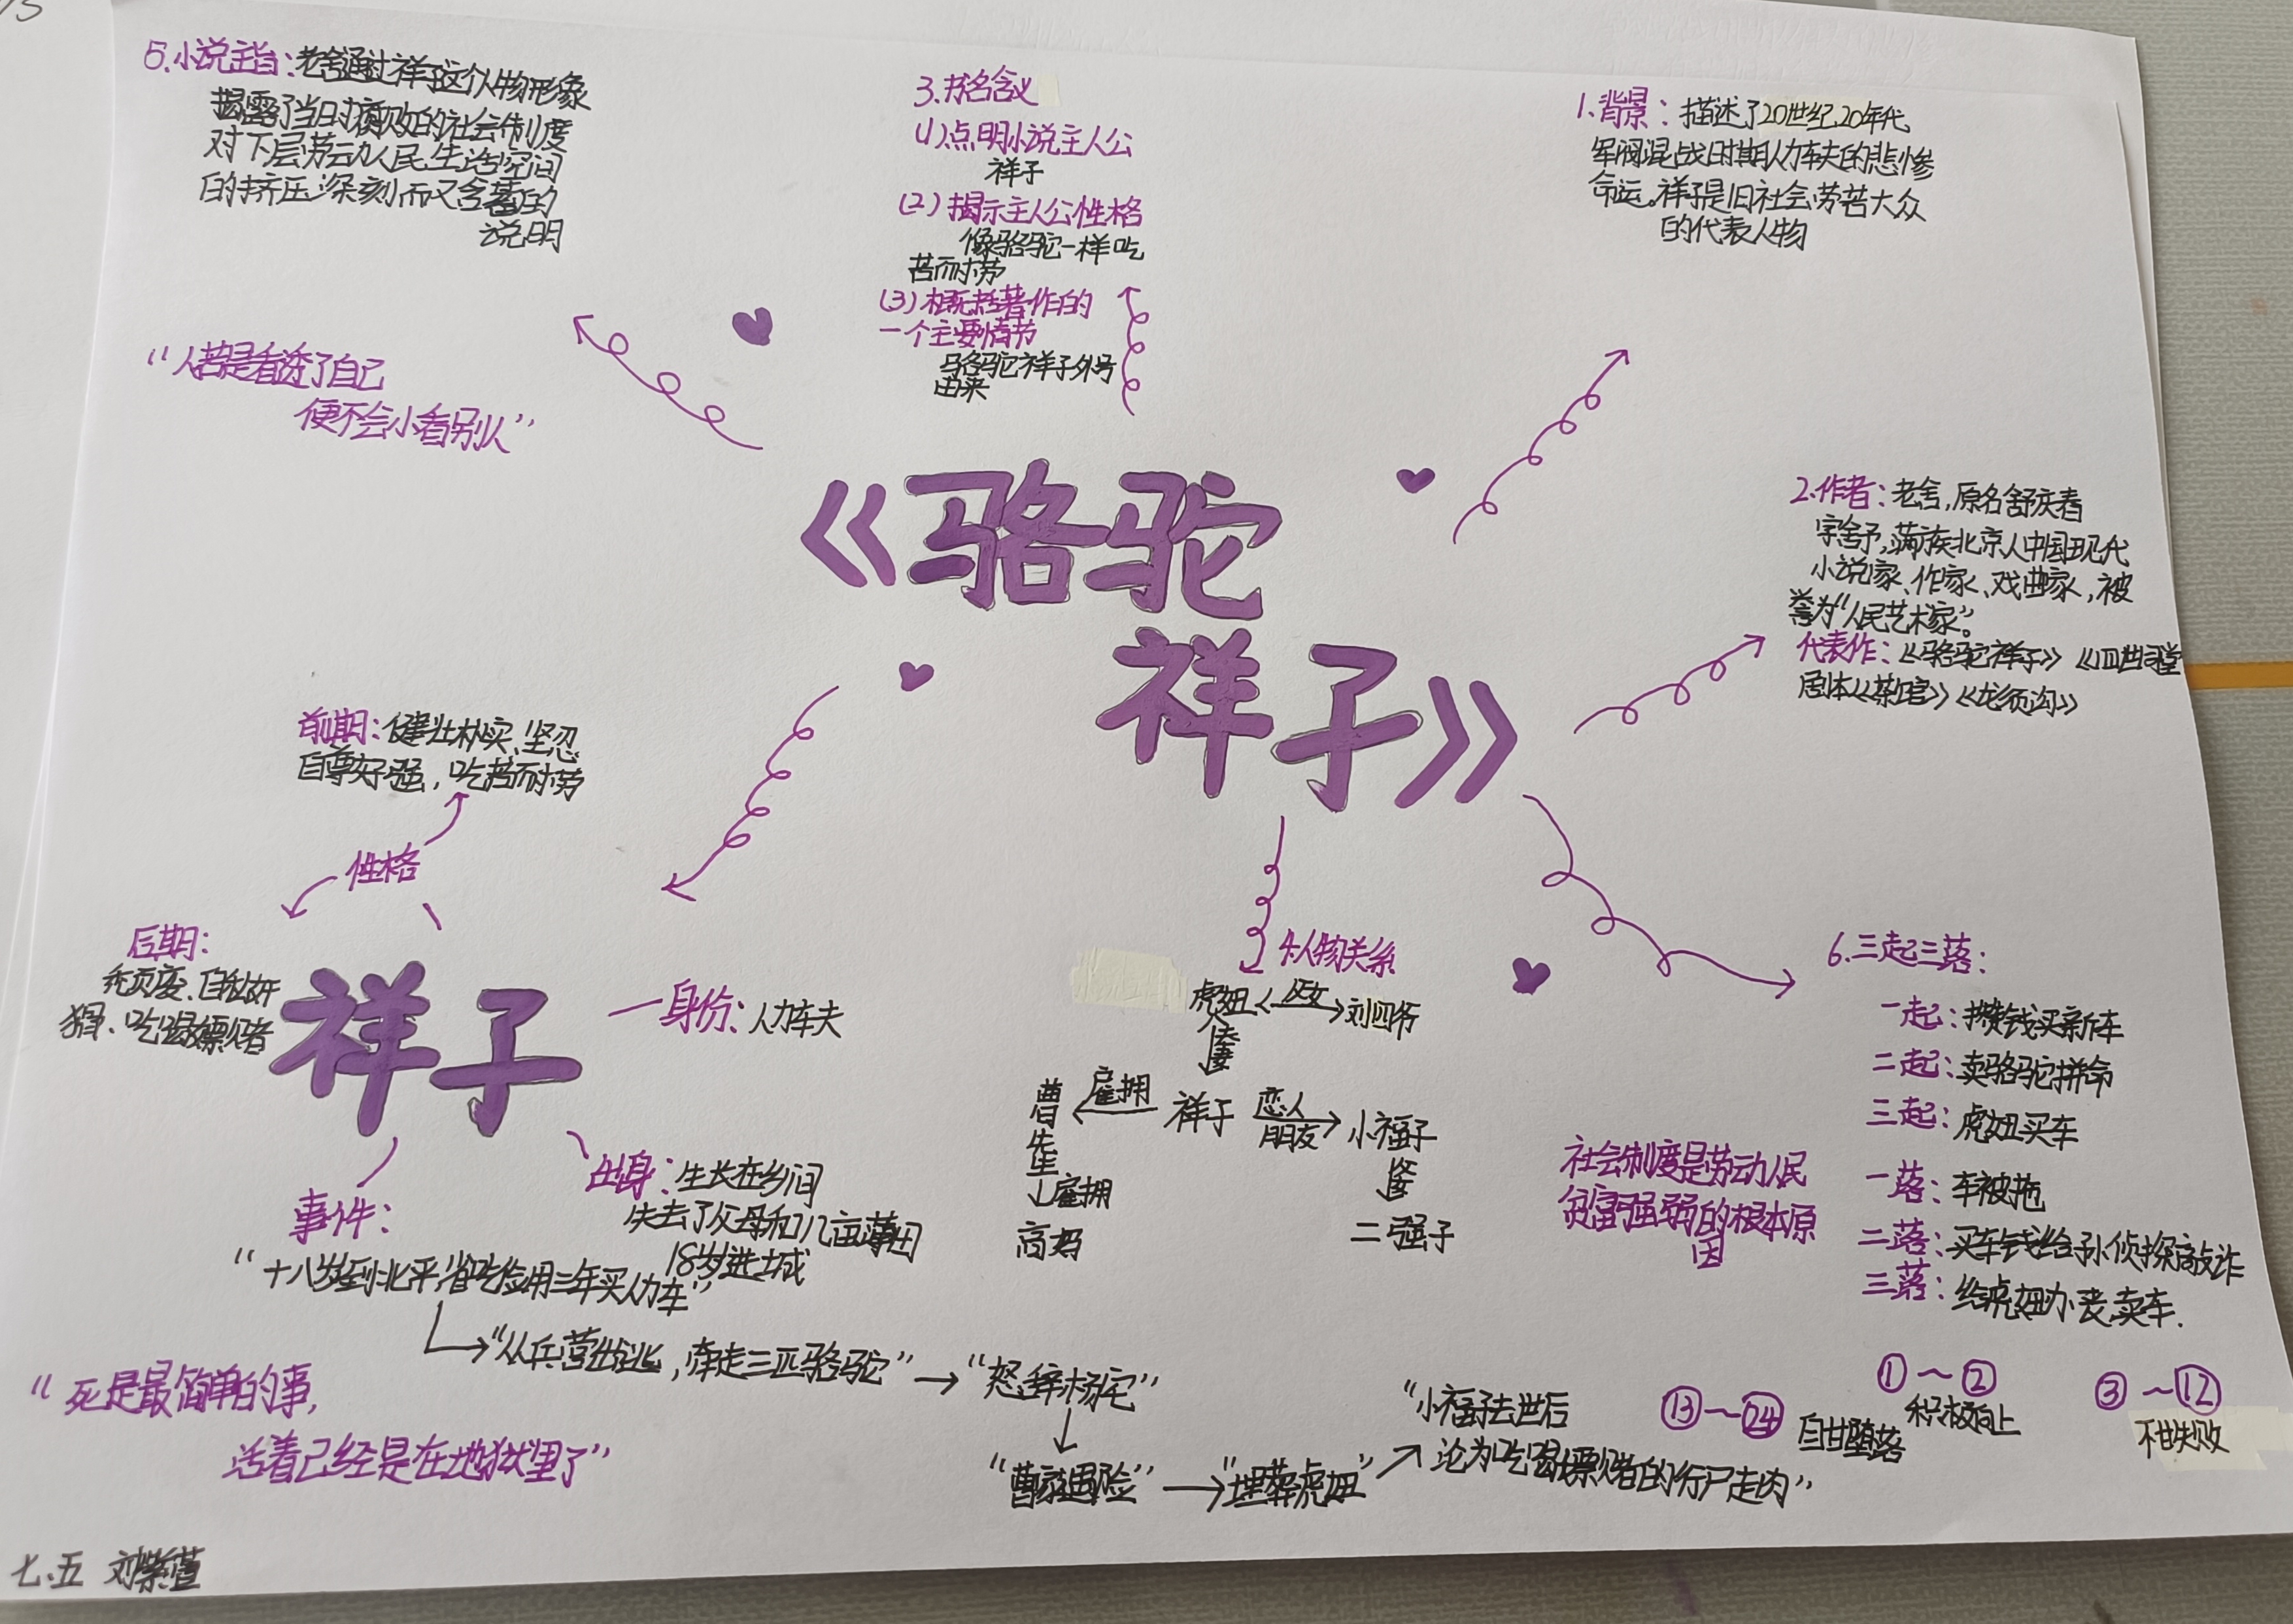 5.小说主旨:老舍通过祥子这个人物形象
揭露了当时腐败的社会制度
对下层劳动人民生活空间
的挤压深刻而又含蓄的
说明
3.书名含义
(1)点明小说主人公
祥子
(2)揭示主人公性格
像骆驼一样吃
苦而耐劳
(3)概括著作的
一个主要情节
骆驼祥子外号
由来
1.背景:描述了20世纪20年代
军阀混战时期人力车夫的悲惨
命运。祥子是旧社会劳苦大众
的代表人物
“人若是看透了自己
便不会小看别人”
《骆驼
祥子》
2.作者:老舍,原名舒庆春
字舍予,满族北京人中国现代
小说家、作家、戏曲家,被
誉为“人民艺术家”。
代表作:《骆驼祥子》《四世同堂
剧本《茶馆》《龙须沟》
前期:健壮朴实、坚忍
自尊好强,吃苦而耐劳
性格
后期:
猾、吃喝嫖赌者
祥子
一身份:人力车夫
出身:生长在乡间
失去了父母和几亩薄田
18岁进城
事件:
“十八岁到北平,省吃俭用三年买人力车”
“从兵营出逃,牵走三匹骆驼”
“怒辞杨宅”
“曹家遇险”
“埋葬虎妞”
“小福子去世后
沦为吃喝嫖赌的行尸走肉”
4.人物关系
虎妞
父女
刘四爷
夫妻
曹先生
雇拥
祥子
恋人
朋友
小福子
雇拥
高妈
二强子
6.三起三落:
一起:攒钱买新车
二起:卖骆驼拼命
三起:虎妞买车
一落:车被拖
二落:买车钱给孙侦探敲诈
三落:给虎妞办丧,卖车.
社会制度是劳动人民
贫富强弱的根本原
因
①~②
积极向上
③~⑫
不甘失败
⑬~㉔
自甘堕落
“死是最简单的事,
活着已经是在地狱里了”
七.五 刘紫萱